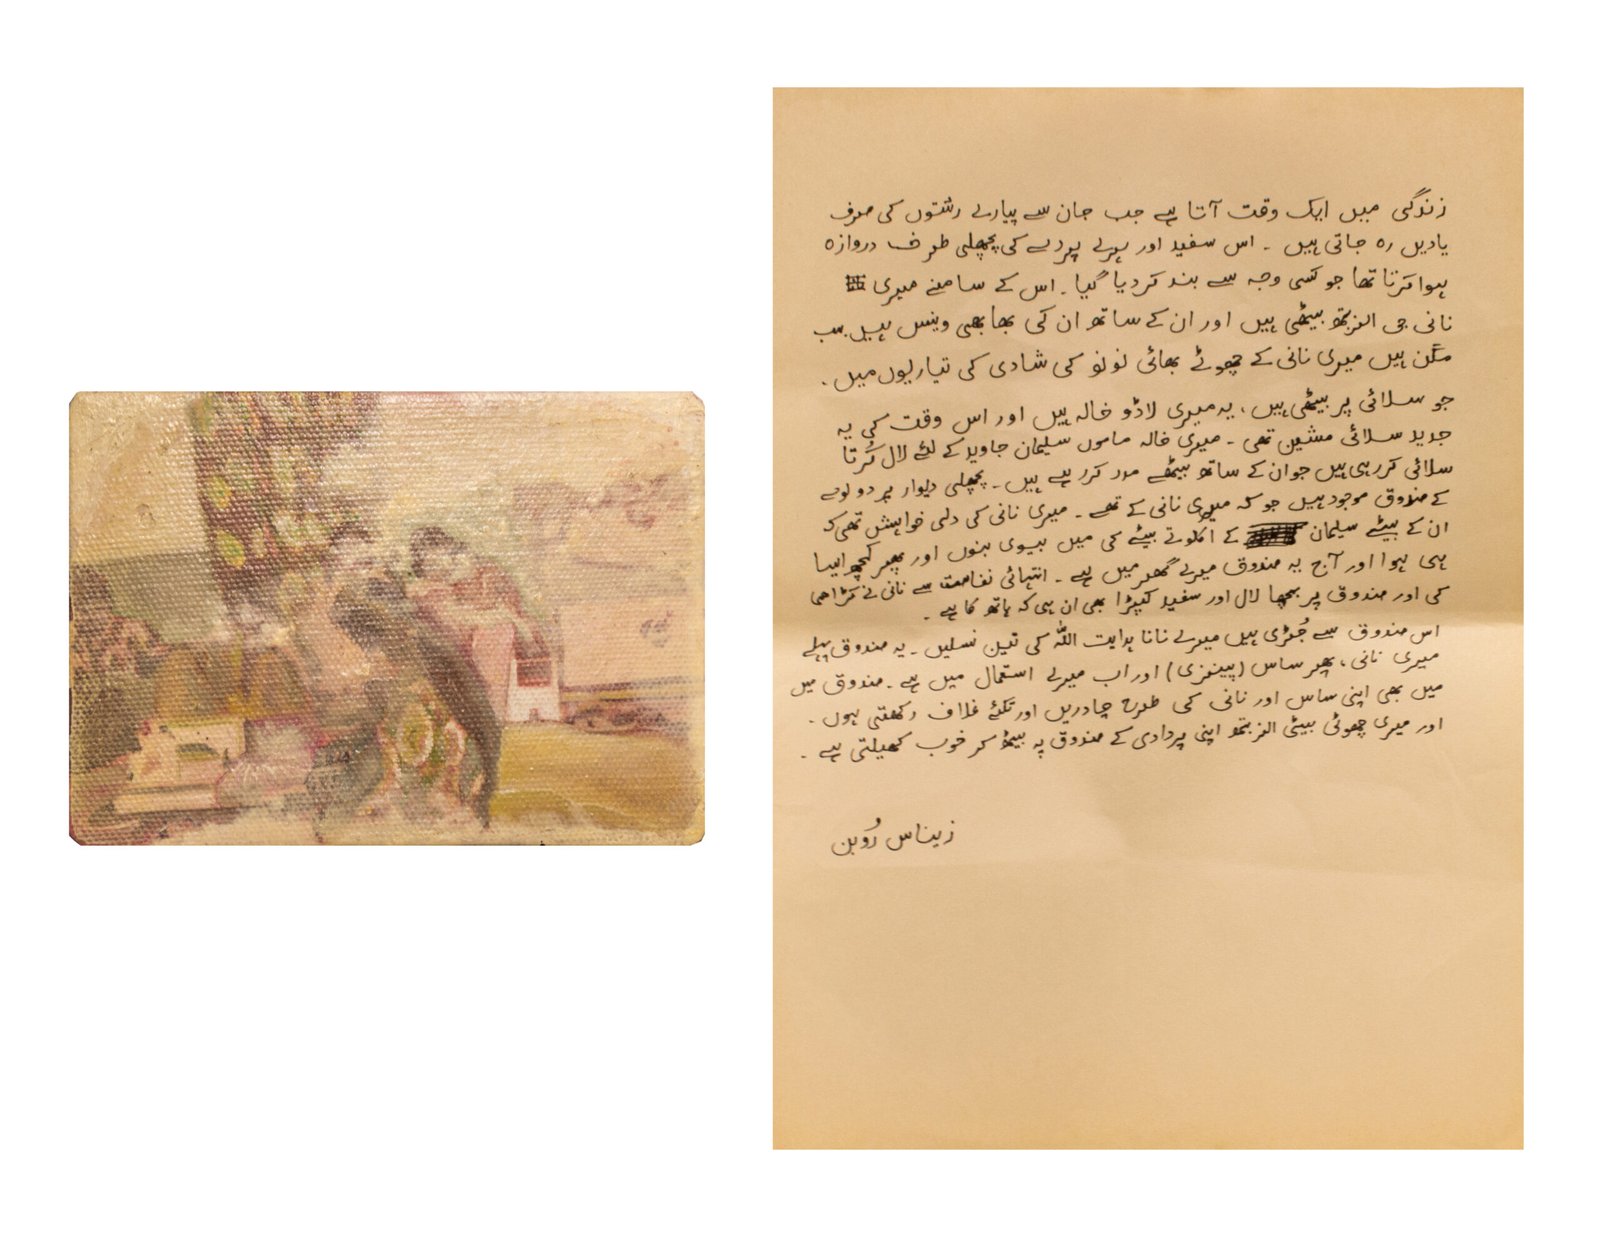 زندگی میں ایک وقت آتا ہے جب جان سے پیارے رشتوں کی صرف
یادیں رہ جاتی ہیں ۔ اس سفید اور ہرے پردے کی پچھلی طرف دروازہ
ہوا کرتا تھا جو کسی وجہ سے بند کر دیا گیا ۔ اس کے سامنے میری
نانی جی الزبتھ بیٹھی ہیں اور ان کے ساتھ ان کی بھابھی وینس ہیں ۔ سب
مگن ہیں میری نانی کے چھوٹے بھائی نونو کی شادی کی تیاریوں میں ۔
جو سلائی پر بیٹھی ہیں ، یہ میری لاڈو خالہ ہیں اور اس وقت کی یہ
جدید سلائی مشین تھی ۔ میری خالہ ماموں سلیمان جاوید کے لئے لال کُرتا
سلائی کر رہی ہیں جو ان کے ساتھ بیٹھے مدد کر رہے ہیں ۔ پچھلی دیوار پر دو لوہے
کے صندوق موجود ہیں جو کہ میری نانی کے تھے ۔ میری نانی کی دلی خواہش تھی کہ
ان کے بیٹے سلیمان کے اکلوتے بیٹے کی میں بیوی بنوں اور پھر کچھ ایسا
ہی ہوا اور آج یہ صندوق میرے گھر میں ہے ۔ انتہائی نفاست سے نانی نے کڑاھی
کی اور صندوق پر بچھا لال اور سفید کپڑا بھی ان ہی کہ ہاتھ کا ہے ۔
اس صندوق سے جُڑی ہیں میرے نانا ہدایت اللہ کی تین نسلیں ۔ یہ صندوق پہلے
میری نانی ، پھر ساس (پینزی) اور اب میرے استعمال میں ہے ۔ صندوق میں
میں بھی اپنی ساس اور نانی کی طرح چادریں اور تکئے غلاف رکھتی ہوں ۔
اور میری چھوٹی بیٹی الزبتھ اپنی پردادی کے صندوق پہ بیٹھ کر خوب کھیلتی ہے ۔
زیناس رُوبن